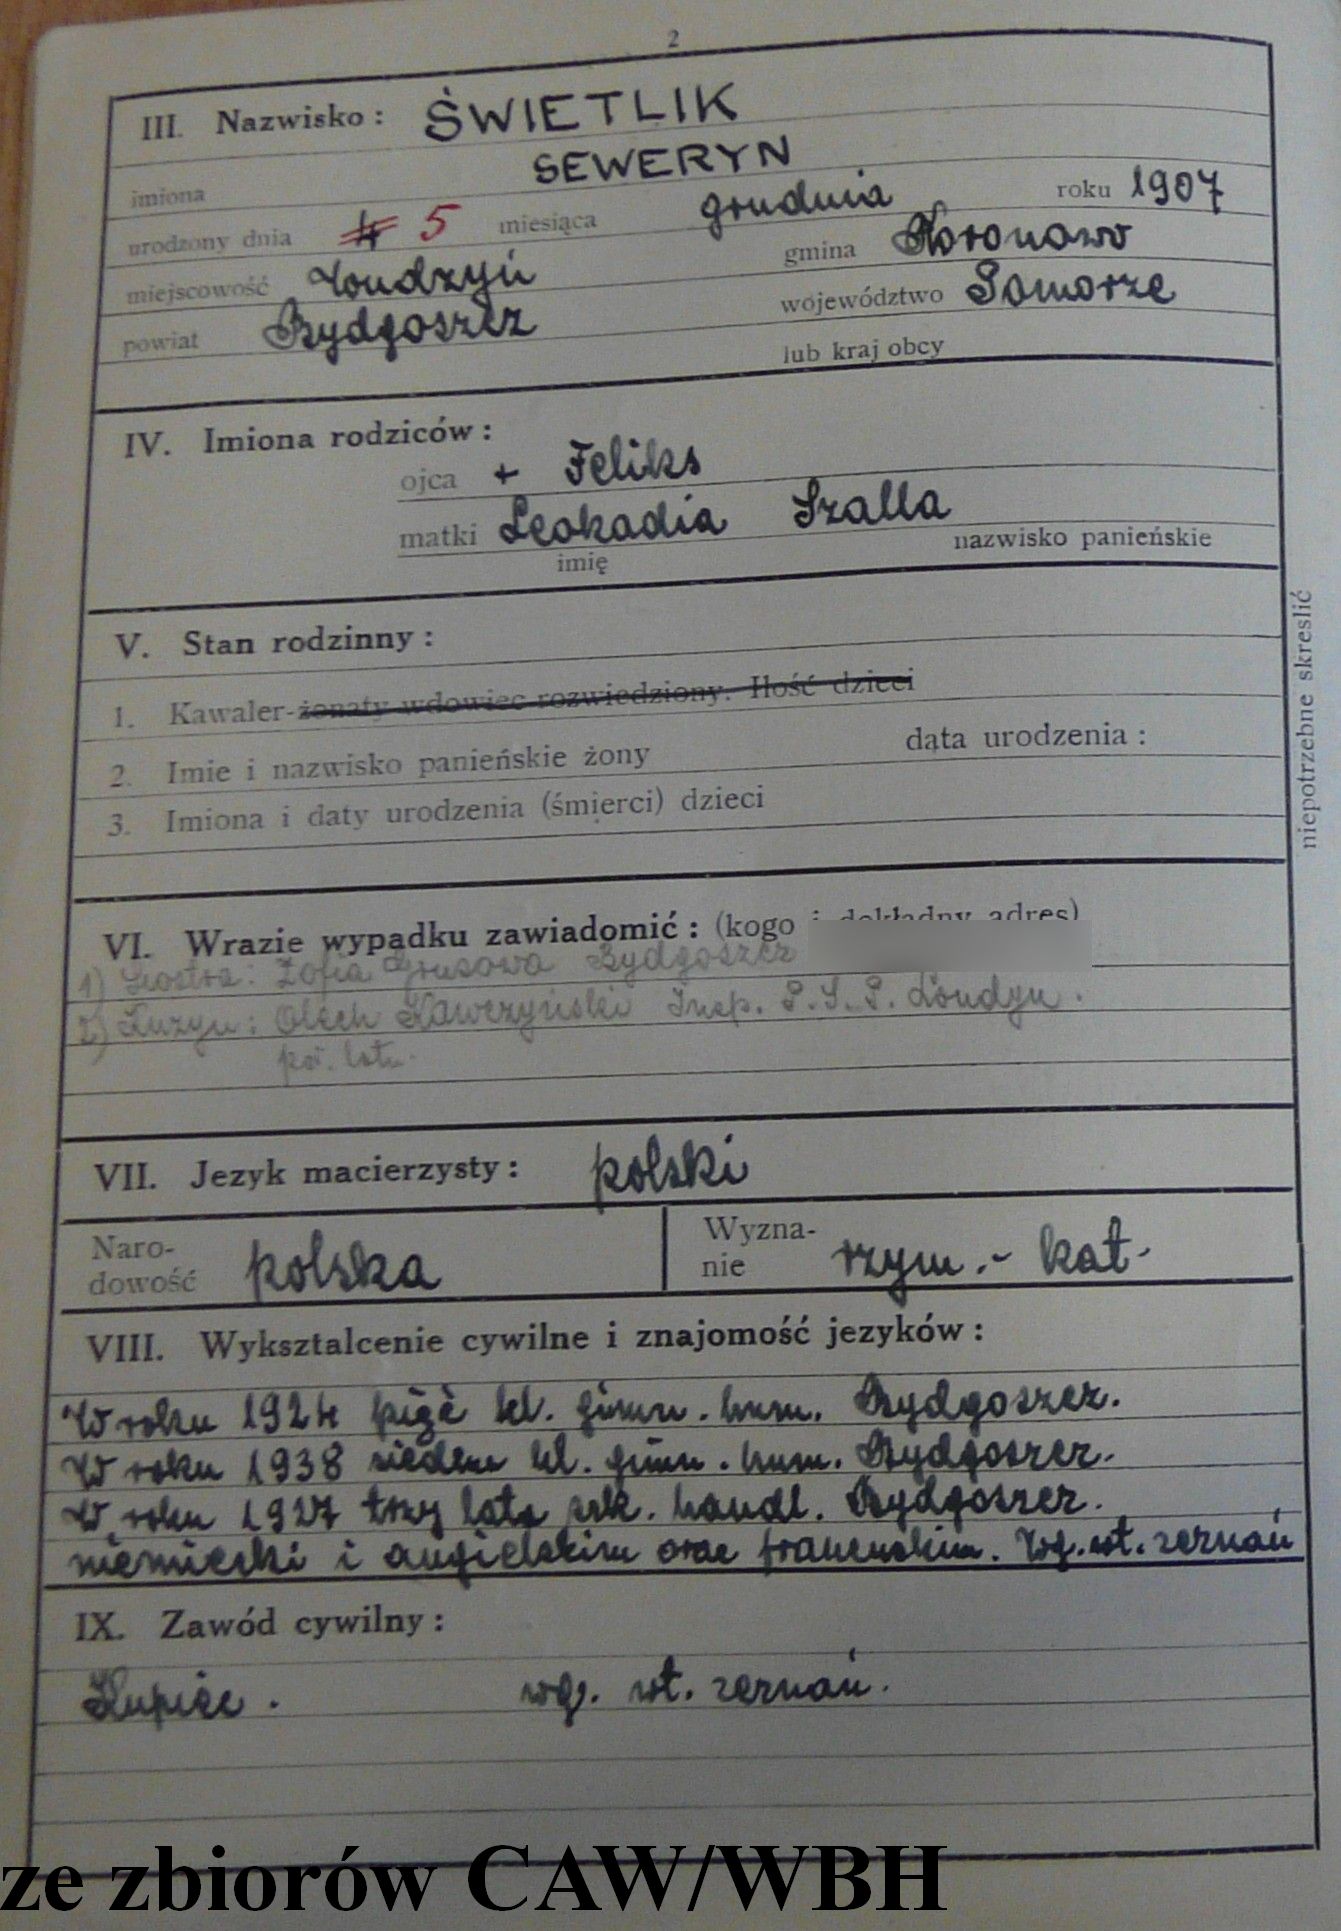 2
III. Nazwisko: ŚWIETLIK
imiona SEWERYN
urodzony dnia 4 5 miesiąca grudnia roku 1907
miejscowość Łoudzyń gmina Koronowo
powiat Bydgoszcz województwo Pomorze
lub kraj obcy
IV. Imiona rodziców:
ojca + Feliks
matki Leokadia Szalla
imię nazwisko panieńskie
V. Stan rodzinny:
1. Kawaler-żonaty wdowiec rozwiedziony. Ilość dzieci
2. Imie i nazwisko panieńskie żony data urodzenia:
3. Imiona i daty urodzenia (śmierci) dzieci
niepotrzebne skreslić
VI. Wrazie wypadku zawiadomić: (kogo i dokładny adres)
1) Siostra: Zofia Bydgoszcz
2) Kuzyn: Olech Kawczyński Insp. P.S.P. Londyn.
por. lotn.
VII. Jezyk macierzysty: polski
Naro- Wyzna-
dowość polska nie rzym.-kat.
VIII. Wyksztalcenie cywilne i znajomość jezyków:
W roku 1924 pięć kl. gimn. hum. Bydgoszcz.
W roku 1938 siedem kl. gimn. hum. Bydgoszcz.
W roku 1927 trzy lata szk. handl. Bydgoszcz.
niemiecki i angielskim oraz francuskim. wg. wł. zeznań
IX. Zawód cywilny:
Kupiec. wg. wł. zeznań.
ze zbiorów CAW/WBH